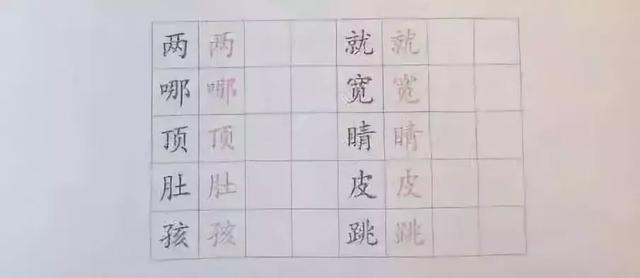 两 两 就 就
哪 哪 宽 宽
顶 顶 睛 睛
肚 肚 皮 皮
孩 孩 跳 跳